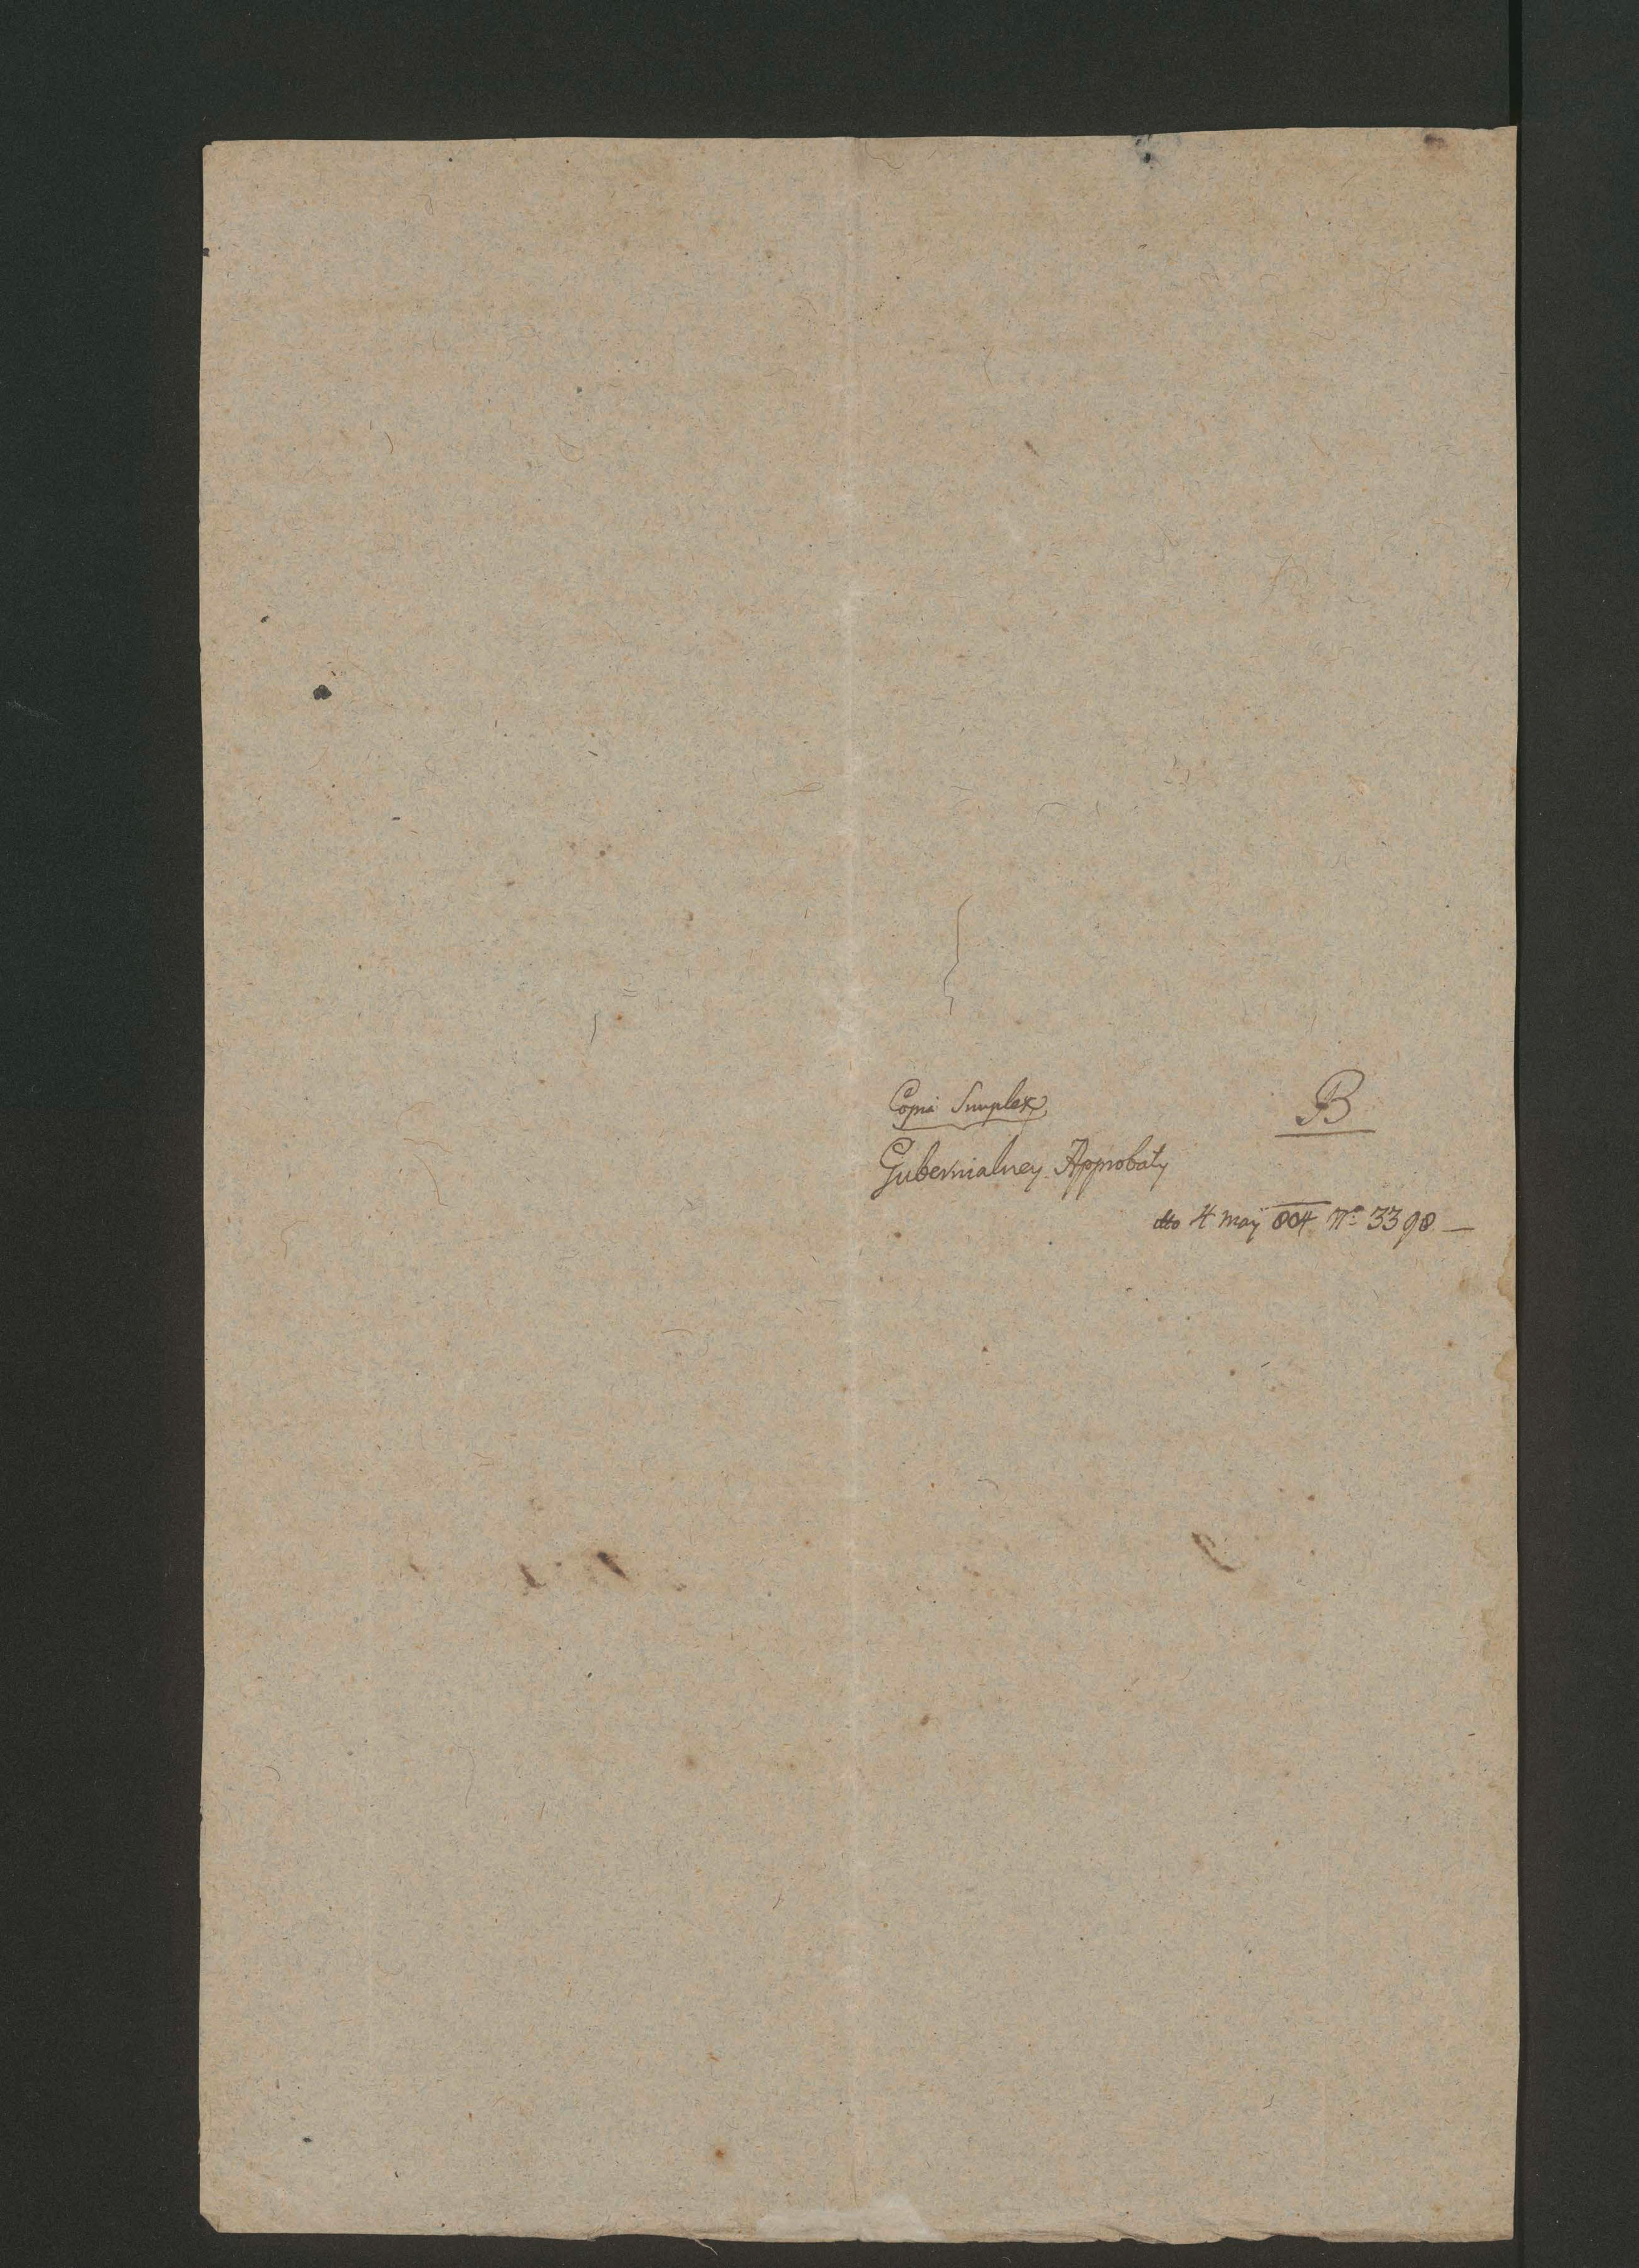 Copia Simplex
B
Gubernialney Approbaty
dto 4 maÿ 804 Nº 3398 —